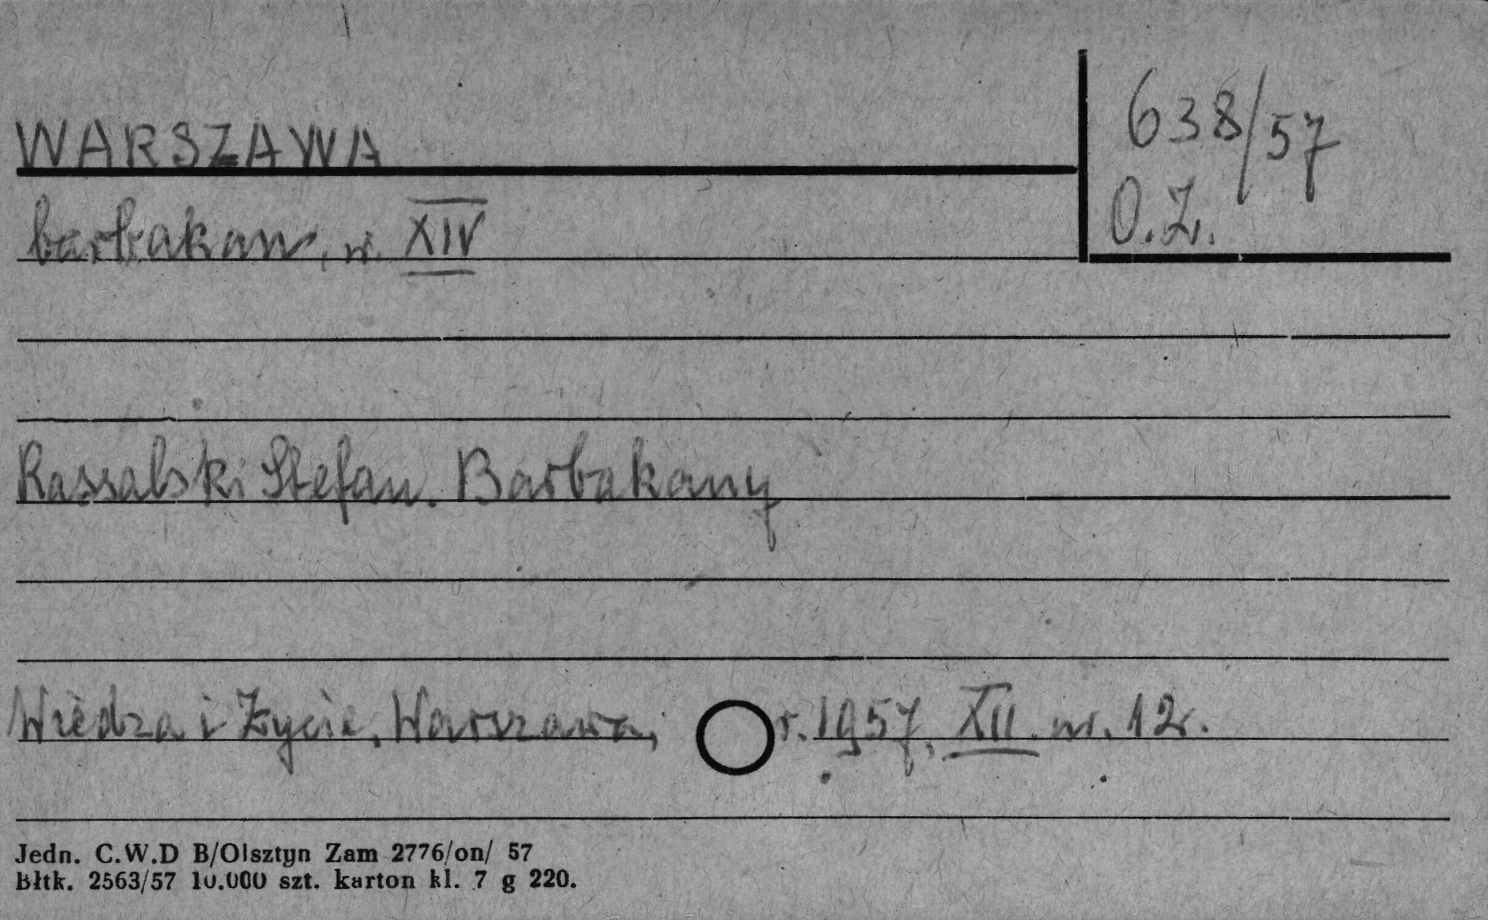 WARSZAWA
638/57
O.Z.
barbakan, w. XIV
Rassalski Stefan. Barbakany
Wiedza i Życie, Warszawa, r. 1957, XII. nr. 12.
Jedn. C.W.D B/Olsztyn Zam 2776/on/ 57
Błtk. 2563/57 10.000 szt. karton kl. 7 g 220.